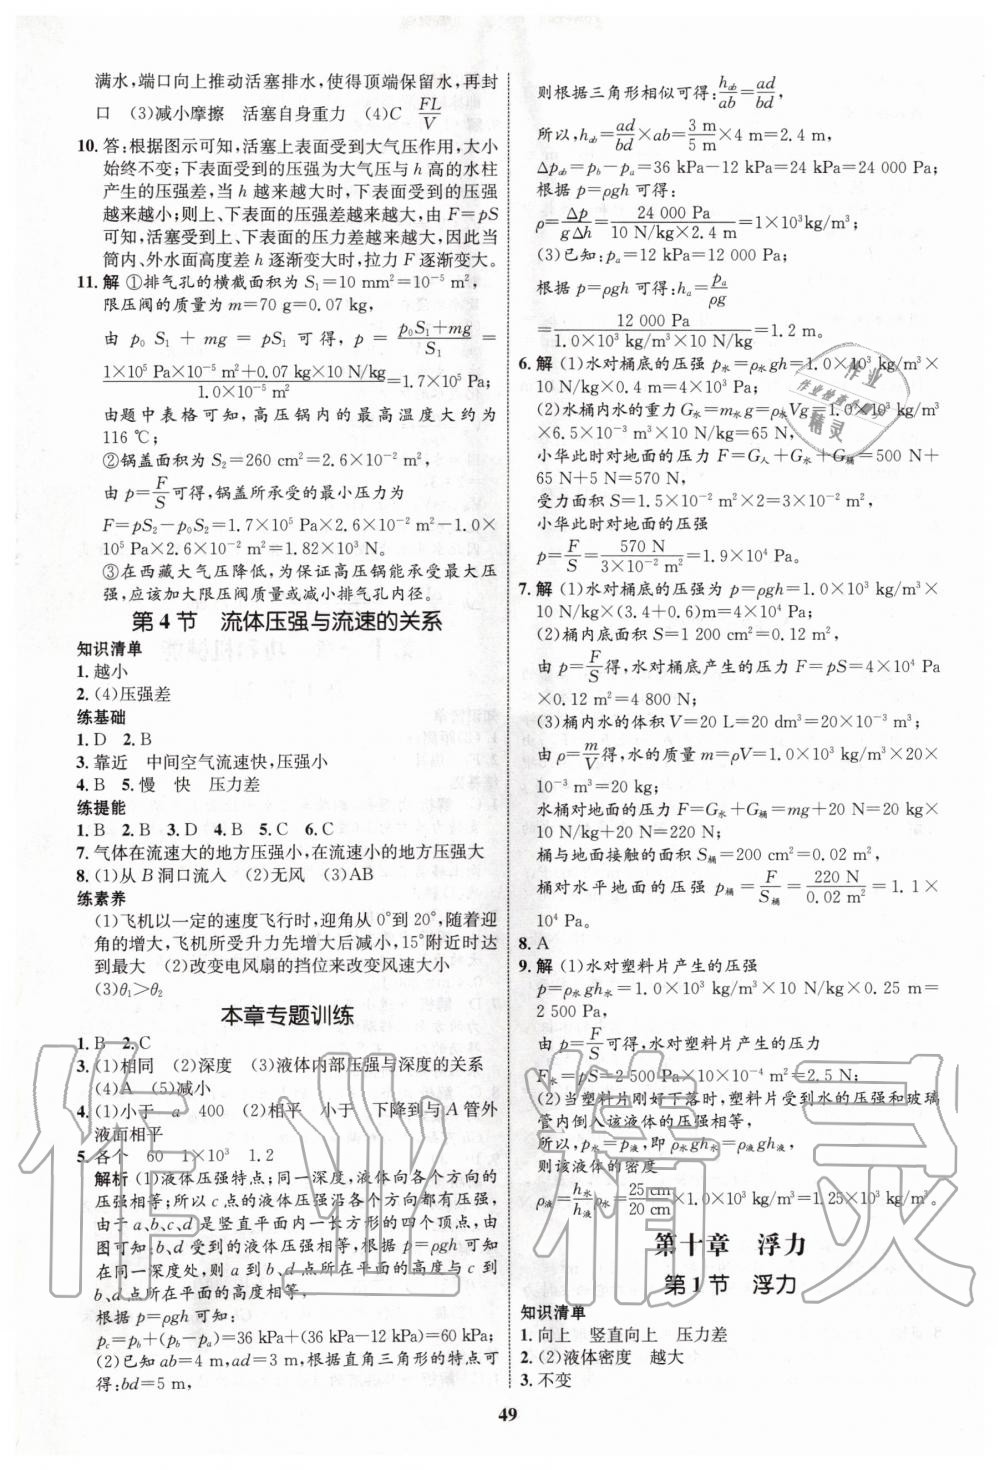 满水,端口向上推动活塞排水,使得顶端保留水,再封
口　(3)减小摩擦　活塞自身重力　(4)C　FL/V
10. 答:根据图示可知,活塞上表面受到大气压作用,大小
始终不变;下表面受到的压强为大气压与 h 高的水柱
产生的压强差,当 h 越来越大时,下表面受到的压强
越来越小;则上、下表面的压强差越来越大,由 F=pS
可知,活塞受到上、下表面的压力差越来越大,因此当
筒内、外水面高度差 h 逐渐变大时,拉力 F 逐渐变大。
11. 解 ①排气孔的横截面积为 S₁=10 mm²=10⁻⁵ m²,
限压阀的质量为 m=70 g=0.07 kg,
由 p₀S₁+mg=pS₁ 可得, p=(p₀S₁+mg)/S₁=
(1×10⁵ Pa×10⁻⁵ m²+0.07 kg×10 N/kg)/(1.0×10⁻⁵ m²)=1.7×10⁵ Pa;
由题中表格可知,高压锅内的最高温度大约为
116 ℃;
②锅盖面积为 S₂=260 cm²=2.6×10⁻² m²,
由 p=F/S可得,锅盖所承受的最小压力为
F=pS₂-p₀S₂=1.7×10⁵ Pa×2.6×10⁻² m²-1.0×
10⁵ Pa×2.6×10⁻² m²=1.82×10³ N。
③在西藏大气压降低,为保证高压锅能承受最大压
强,应该加大限压阀质量或减小排气孔内径。
第 4 节　流体压强与流速的关系
知识清单
1. 越小
2. (4)压强差
练基础
1. D　2. B
3. 靠近　中间空气流速快,压强小
4. B　5. 慢　快　压力差
练提能
1. B　2. B　3. D　4. B　5. C　6. C
7. 气体在流速大的地方压强小,在流速小的地方压强大
8. (1)从 B 洞口流入　(2)无风　(3)AB
练素养
(1)飞机以一定的速度飞行时,迎角从 0°到 20°,随着迎
角的增大,飞机所受升力先增大后减小,15°附近时达
到最大　(2)改变电风扇的挡位来改变风速大小
(3)θ₁>θ₂
本章专题训练
1. B　2. C
3. (1)相同　(2)深度　(3)液体内部压强与深度的关系
(4)A　(5)减小
4. (1)小于　a　400　(2)相平　小于　下降到与 A 管外
液面相平
5. 各个　60　1×10³　1.2
解析 (1)液体压强特点:同一深度,液体向各个方向的
压强相等;所以 c 点的液体压强沿各个方向都有压强,
由于 a、b、c、d 是竖直平面内一长方形的四个顶点,由
图可知,b、d 受到的液体压强相等,根据 p=ρgh可知
在同一深度处,则 a 到 b、d 点所在平面的高度与 c 到
b、d 点所在平面的高度相等,
根据 p=ρgh 可知:
pc=pb+(pb-pa)=36 kPa+(36 kPa-12 kPa)=60 kPa;
(2)已知 ab=4 m,ad=3 m,根据直角三角形的特点可
得:bd=5 m,
则根据三角形相似可得:hab/ab=ad/bd,
所以,hab=ad/bd×ab=3 m/5 m×4 m=2.4 m,
Δpab=pb-pa=36 kPa-12 kPa=24 kPa=24 000 Pa;
根据 p=ρgh 可得:
ρ=Δp/gΔh=24 000 Pa/(10 N/kg×2.4 m)=1×10³kg/m³;
(3)已知:pa=12 kPa=12 000 Pa;
根据 p=ρgh 可得:ha=pa/ρg
=12 000 Pa/(1.0×10³ kg/m³×10 N/kg)=1.2 m。
6. 解 (1)水对桶底的压强 p水=ρ水gh=1.0×10³ kg/m³×
10 N/kg×0.4 m=4×10³ Pa;
(2)水桶内水的重力 G水=m水g=ρ水Vg=1.0×10³ kg/m³
×6.5×10⁻³ m³×10 N/kg=65 N,
小华此时对地面的压力 F=G人+G水+G桶=500 N+
65 N+5 N=570 N,
受力面积 S=1.5×10⁻² m²×2=3×10⁻² m²,
小华此时对地面的压强
p=F/S=570 N/(3×10⁻² m²)=1.9×10⁴ Pa。
7. 解 (1)水对桶底的压强为 p=ρgh=1.0×10³ kg/m³×
10 N/kg×(3.4+0.6)m=4×10⁴ Pa;
(2)桶内底面积为 S=1 200 cm²=0.12 m²,
由 p=F/S得,水对桶底产生的压力 F=pS=4×10⁴ Pa
×0.12 m²=4 800 N;
(3)桶内水的体积 V=20 L=20 dm³=20×10⁻³ m³;
由 ρ=m/V得,水的质量 m=ρV=1.0×10³ kg/m³×20×
10⁻³ m³=20 kg;
水桶对地面的压力 F=G水+G桶=mg+20 N=20 kg×
10 N/kg+20 N=220 N;
桶与地面接触的面积 S桶=200 cm²=0.02 m²,
桶对水平地面的压强 p桶=F/S桶=220 N/0.02 m²=1.1×
10⁴ Pa。
8. A
9. 解 (1)水对塑料片产生的压强
p=ρ水gh水=1.0×10³ kg/m³×10 N/kg×0.25 m=
2 500 Pa,
由 p=F/S可得,水对塑料片产生的压力
F水=pS=2 500 Pa×10⁻³ m²=2.5 N;
(2)当塑料片刚好下落时,塑料片受到水的压强和玻璃
管内倒入该液体的压强相等,
所以,p水=p液,即 ρ水gh水=ρ液gh液,
则该液体的密度
ρ液=h水/h液 ρ水=25 cm/20 cm×1.0×10³ kg/m³=1.25×10³ kg/m³。
第十章　浮力
第 1 节　浮力
知识清单
1. 向上　竖直向上　压力差
2. (2)液体密度　越大
3. 不变
49
作业精灵
作业
作业检查
精灵